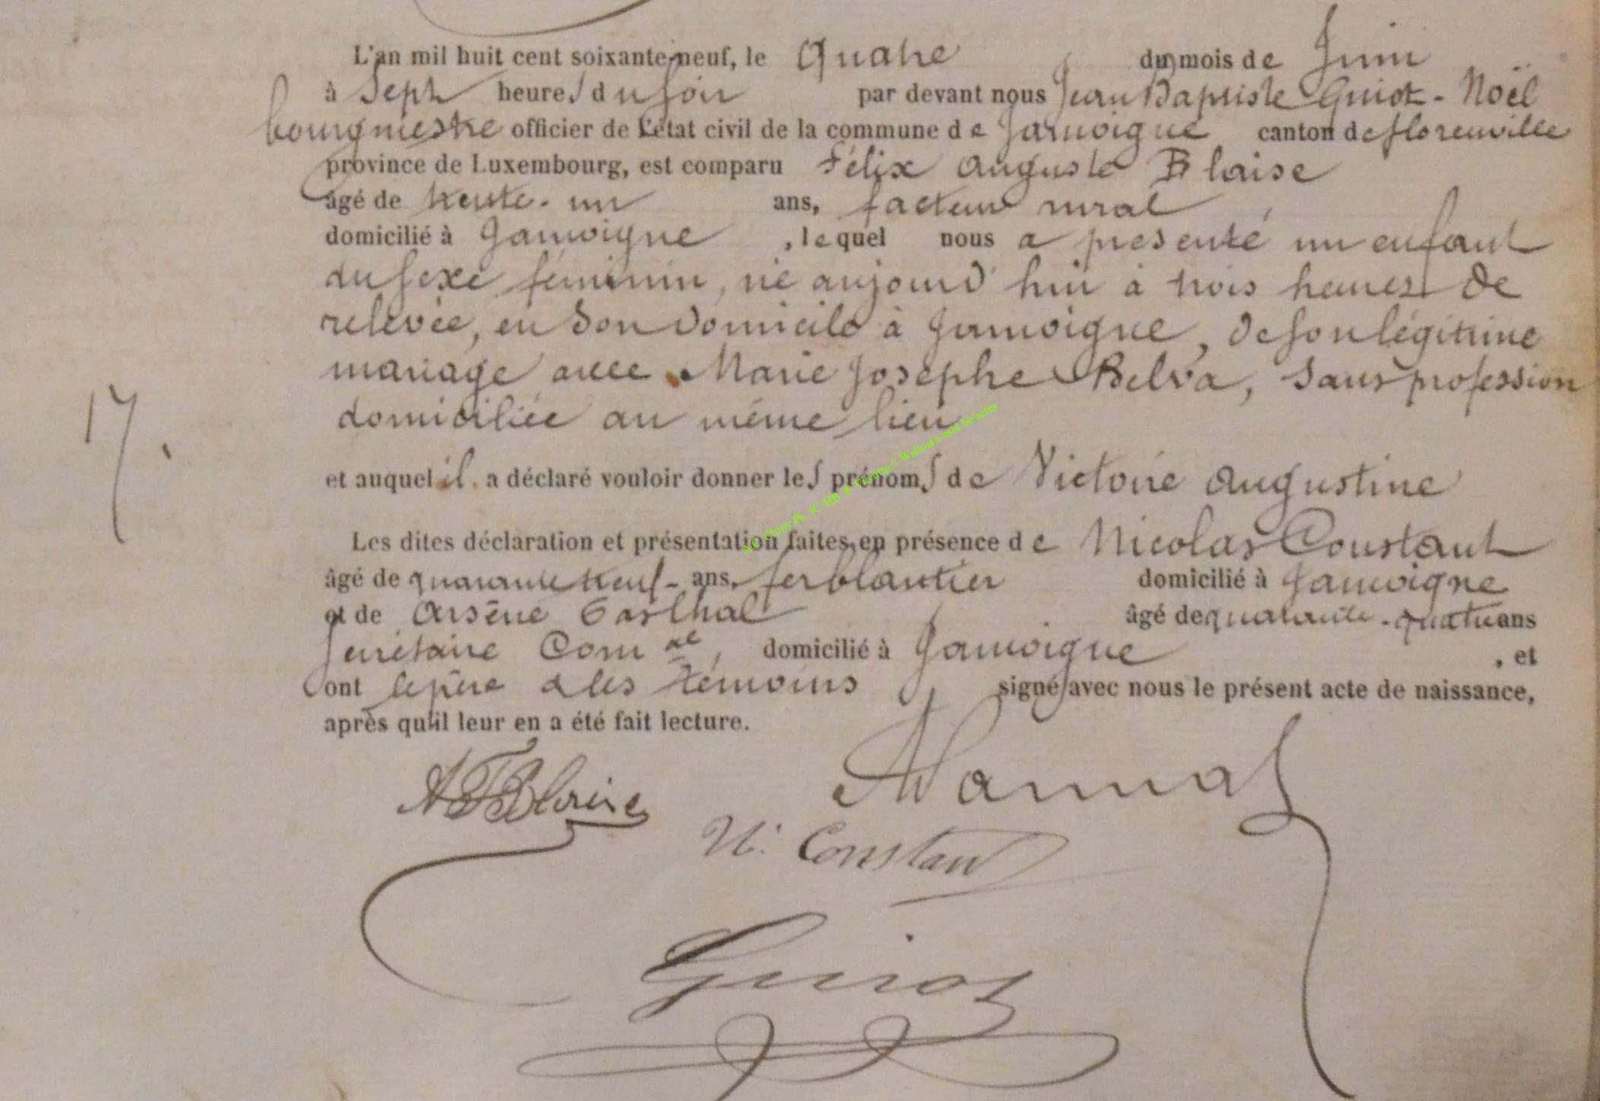 L'an mil huit cent soixante neuf, le Quatre du mois de Juin
à Sept heures du soir par devant nous Jean Baptiste Guiot - Noël
bourgmestre officier de l'état civil de la commune de Jamoigne canton de florenville
province de Luxembourg, est comparu Félix Auguste Blaise
âgé de trente-un ans, facteur rural
domicilié à Jamoigne , lequel nous a présenté un enfant
du sexe féminin, né aujourd'hui à trois heures de
relevée, en son domicile à Jamoigne, de son légitime
mariage avec Marie Josephe Belva, sans profession
domiciliée au même lieu
17.
et auquel il a déclaré vouloir donner les prénoms de Victoire Augustine
Les dites déclaration et présentation faites en présence de Nicolas Constant
âgé de quarante neuf ans, ferblantier domicilié à Jamoigne
et de Arsène âgé de quarante-quatre ans
Secrétaire Com al, domicilié à Jamoigne , et
ont le père & les témoins signé avec nous le présent acte de naissance,
après qu'il leur en a été fait lecture.
N. Constant
Guiot